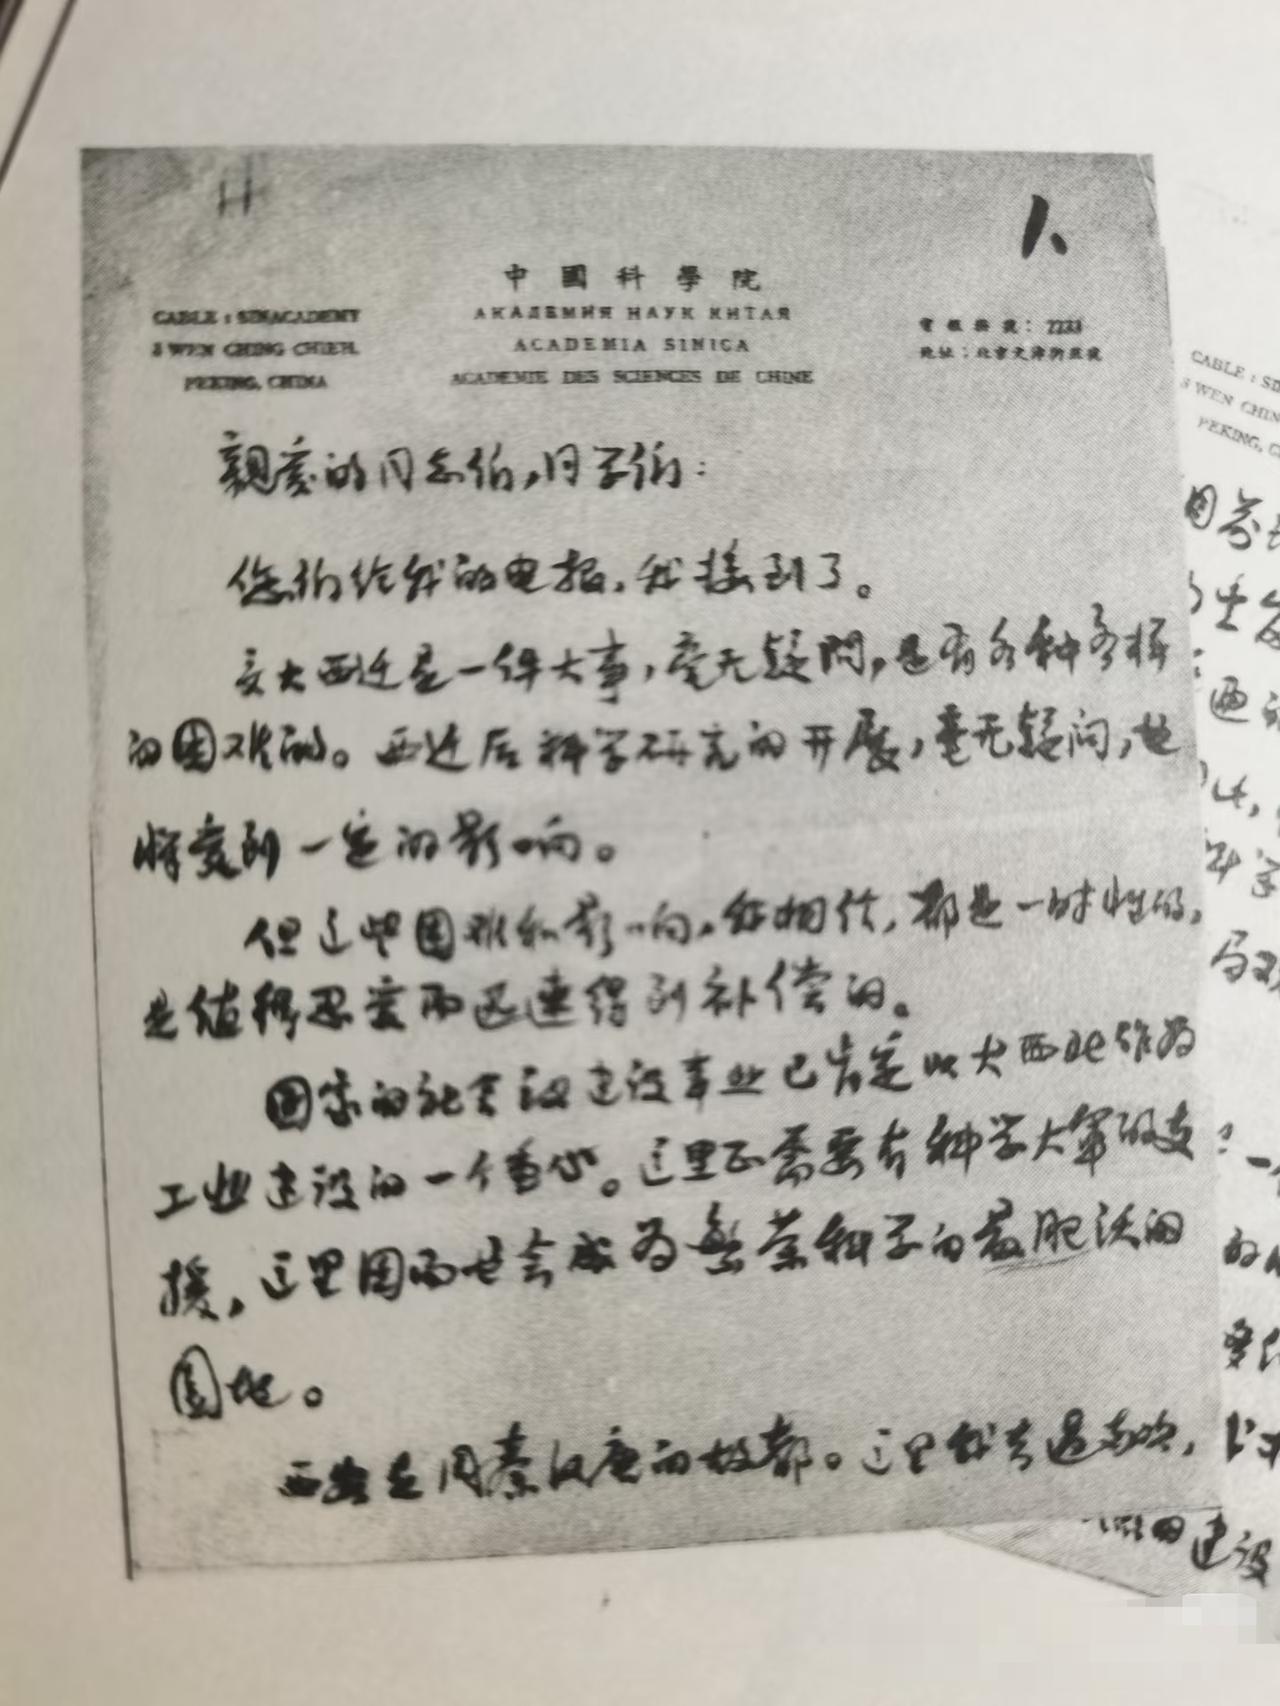 1、
中國科學院
CABLE : SINACADEMY
АКАДЕМИЯ НАУК КИТАЯ
3 WEN CHING CHIEH.
ACADEMIA SINICA
PEKING, CHINA
ACADEMIE DES SCIENCES DE CHINE
電報掛號：2233
地址：北京文津街三號
親爱的同志们，同学们：
您们给我的电报，我接到了。
交大西迁是一件大事，毫无疑問，是有各种各样
的困难的。西迁后科学研究的开展，毫无疑问，也
将受到一定的影响。
但这些困难和影响，我相信，都是一时性的，
是值得忍受而迅速得到补偿的。
国家的社会主义建设事业已肯定以大西北作为
工业建设的一个重心。这里正需要有科学大军的支
援，这里因而也会成为繁荣科学的最肥沃的
园地。
西安是周秦汉唐的故都。这里我去过两次，
CABLE : SI
3 WEN CHIN
PEKING, C
建设